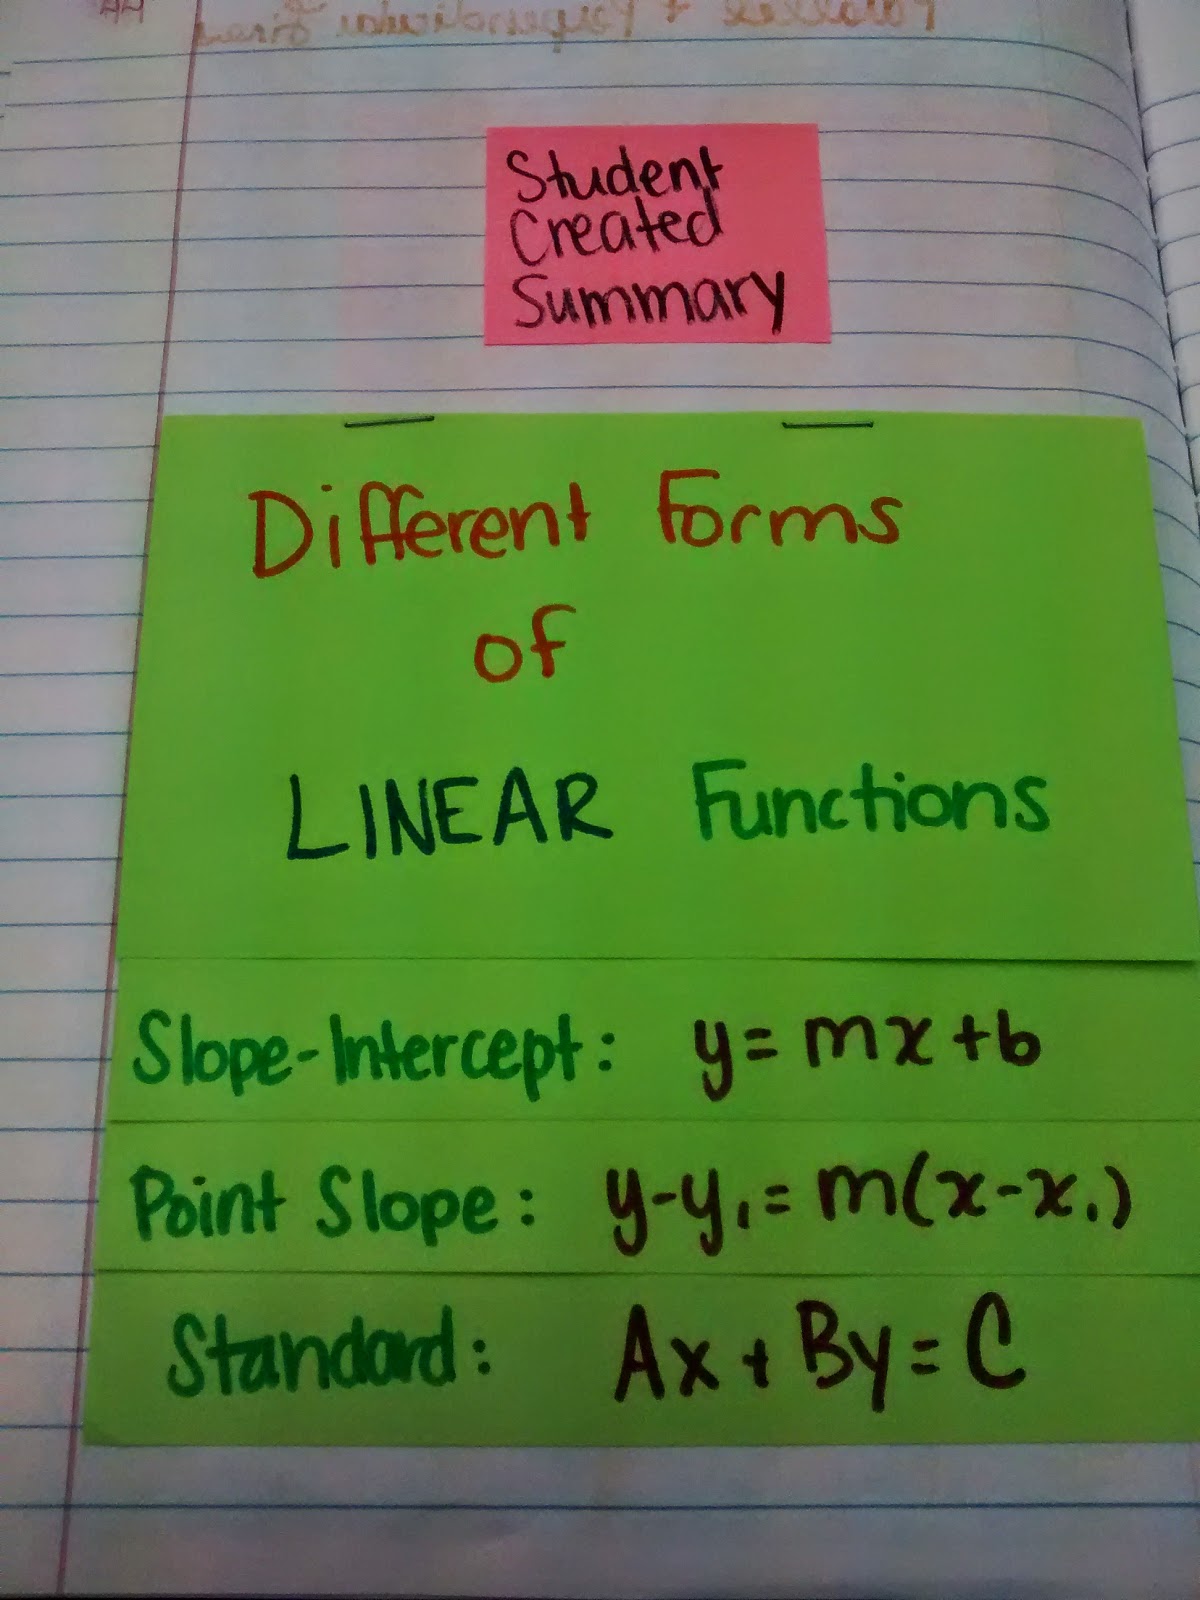 Student
Created
Summary
Different Forms
of
LINEAR Functions
Slope-Intercept: y = mx + b
Point Slope: y - y₁ = m(x - x₁)
Standard: Ax + By = C